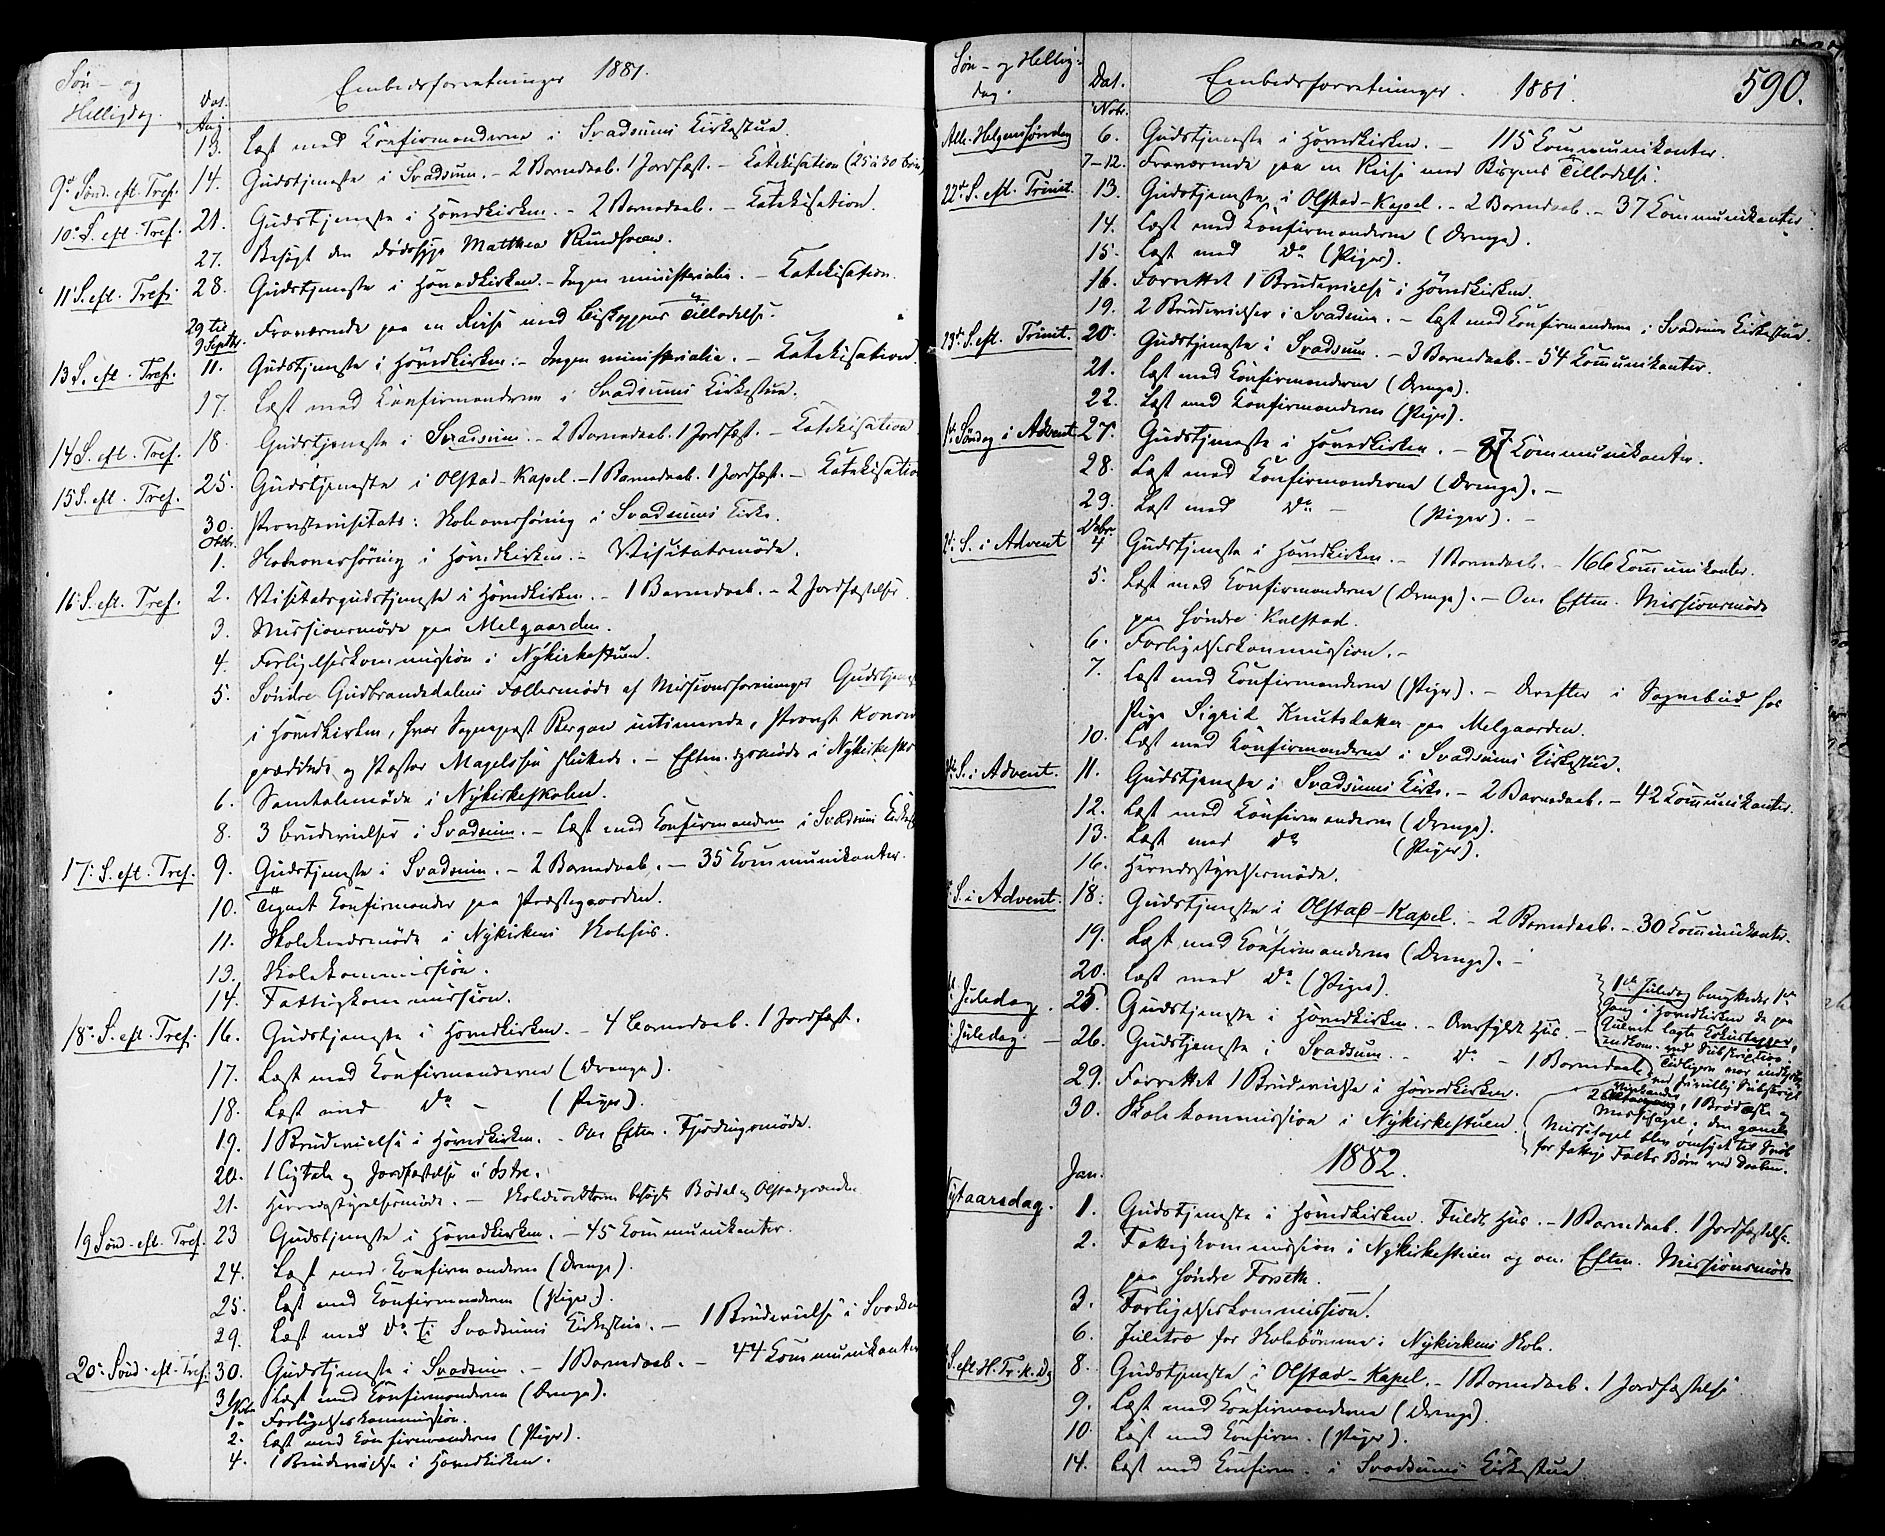 Søn- og Helligdag.
Dat.
Embedsforretninger 1881.
Aug.
13. Læst med Konfirmanderne i Svadsums Kirkestue.
9de Sønd. eft. Tref. 14. Gudstjeneste i Svadsum. - 2 Barnedaab. 1 Jordfæst. - Katekisation (25 à 30 Børn)
10. S. eft. Tref. 21. Gudstjeneste i Hovedkirken. - 2 Barnedaab. - Katekisation.
27. Besøgt den dødssyge Matthea
11 S. eft. Tref. 28. Gudstjeneste i Hovedkirken. - Ingen ministerialia. - Katekisation.
29 til 9 Septbr. Fraværende paa en Reise med Biskoppens Tilladelse.
13 S. eft. Tref. 11. Gudstjeneste i Hovedkirken. - Ingen ministerialia. - Katekisation.
17. Læst med Konfirmanderne i Svadsums Kirkestue.
14 S. eft. Tref. 18. Gudstjeneste i Svadsum. - 2 Barnedaab. 1 Jordfæst. - Katekisation
15 S. eft. Tref. 25. Gudstjeneste i Olstad-Kapel. - 1 Barnedaab. 1 Jordfæst. - Katekisatio
30. Provstevisitats: Skoleoverhøring i Svadsums Kirke.
Octbr.
1. Skoleoverhøring i Hovedkirken. - Visitatsmøde.
16 S. eft. Tref. 2. Visitatsgudstjeneste i Hovedkirken. - 1 Barnedaab. - 2 Jordfæstelser.
3. Missionsmøde paa Melgaarden.
4. Forligelseskommission i Nykirkestuen.
5. Søndre Gudbrandsdalens Fællesmøde af Missionsforeninger Gudstjen
i Hovedkirken, hvor Sogneprest Bergan intimerede, Provst
prædikede og Pastor Magelssen sluttede. - Eftm. i Nykirkesko
6. Samtalemøde i Nykirkeskolen.
8. 3 Brudevielser i Svadsum. - Læst med Konfirmanderne i Svadsums
17. S. eft. Tref. 9. Gudstjeneste i Svadsum. - 2 Barnedaab. - 35 Kommunikanter.
10. Tegnet Konfirmander paa Præstegaarden.
11. Skolekredsmøde i Nykirkens Skolehus.
13. Skolekommission.
14. Fattigkommission.
18. S. eft. Tref. 16. Gudstjeneste i Hovedkirken. - 4 Barnedaab. 1 Jordfæst.
17. Læst med Konfirmanderne (Drenge).
18. Læst med Do - (Piger).
19. 1 Brudevielse i Hovedkirken. - Om Eftm.
20. 1 Ligtale og Jordfæstelse i
21. Herredsstyrelsesmøde. - besøgte Bødal og
19 Sønd. eft. Tref. 23 Gudstjeneste i Hovedkirken. - 45 Kommunikanter.
24. Læst med Konfirmanderne (Drenge).
25. Læst med Konfirmanderne (Piger).
29. Læst med Do i Svadsums Kirkestue. - 1 Brudevielse i Svadsum
20. Sønd. eft. Tref. 30. Gudstjeneste i Svadsum. - 1 Barnedaab. - 44 Kommunikanter
31 Læst med Konfirmanderne (Drenge).
Nov.
1. Forligelseskommission.
2. Læst med Konfirmanderne (Piger).
4. 1 Brudevielse i Hovedkirken.
Søn- og Helligdag.
Dat.
Embedsforretninger. 1881.
590.
Nobr.
Alle-Helgenssøndag 6. Gudstjeneste i Hovedkirken. - 115 Kommunikanter.
7-12. Fraværende paa en Reise med Bispens Tilladelse.
22de S. eft. Trinit. 13. Gudstjeneste i Olstad-Kapel. - 2 Barnedaab. - 37 Kommunikanter.
14. Læst med Konfirmanderne (Drenge).
15. Læst med Do (Piger).
16. Forrettet 1 Brudevielse i Hovedkirken.
19. 2 Brudevielser i Svadsum. - Læst med Konfirmanderne i Svadsums Kirkestue.
23de S. eft. Trinit. 20. Gudstjeneste i Svadsum. - 3 Barnedaab. - 54 Kommunikanter.
21. Læst med Konfirmanderne (Drenge).
22. Læst med Konfirmanderne (Piger).
1ste Søndag i Advent 27. Gudstjeneste i Hovedkirken. - 87 Kommunikanter.
28. Læst med Konfirmanderne (Drenge). -
29. Læst med Do - (Piger). -
Debr.
S. i Advent 4 Gudstjeneste i Hovedkirken. - 1 Barnedaab. - 166 Kommunikanter.
5. Læst med Konfirmanderne (Drenge). - Om Eftm. Missionsmøde
paa Søndre Kalstad.
6. Forligelseskommission. -
7. Læst med Konfirmanderne (Piger). - Derefter i Sognebud hos
Pige Sigrid Knutsbakken paa Melgaarden.
10. Læst med Konfirmanderne i Svadsums Kirkestue.
S. i Advent. 11. Gudstjeneste i Svadsums Kirke. - 2 Barnedaab. - 42 Kommunikanter.
12. Læst med Konfirmanderne (Drenge).
13. Læst med Do (Piger).
16. Herredsstyrelsesmøde.
S. i Advent. 18. Gudstjeneste i Olstad-Kapel. - 2 Barnedaab. - 30 Kommunikanter.
19. Læst med Konfirmanderne (Drenge). -
20. Læst med Do (Piger).
Juledag. 25 Gudstjeneste i Hovedkirken. - Overfyldt Hus. -
Juledag. 26. Gudstjeneste i Svadsum. - Do - 1 Barnedaab.
29. Forrettet 1 Brudevielse i Hovedkirken.
30. Skolekommission i Nykirkestuen.
1ste Juledag benyttedes 1ste
Gang i Hovedkirken de paa
Gulvet lagte
indkom. ved Subskription.
Tidligere var indkjøbt
ved frivillig Subskript.
2 1 Brødæske og
Messehagel; den gamle
Messehagel blev omsyet til
for fattige Folks Børn ved Daaben.
1882.
Jan.
Nytaarsdag. 1. Gudstjeneste i Hovedkirken. Fuldt Hus. - 1 Barnedaab. 1 Jordfæstelse.
2. Fattigkommission i Nykirkestuen og om Eftm. Missionsmøde
paa Søndre Forseth.
3. Forligelseskommission.
6. Juletræ for Skolebørnene i Nykirkens Skole.
S. eft. H. Tr. K. Dg 8. Gudstjeneste i Olstad-Kapel. - 1 Barnedaab. 1 Jordfæstelse
9. Læst med Konfirmanderne (Drenge).
10. Læst med Konfirm. (Piger).
14. Læst med Konfirm. i Svadsums Kirkestue.